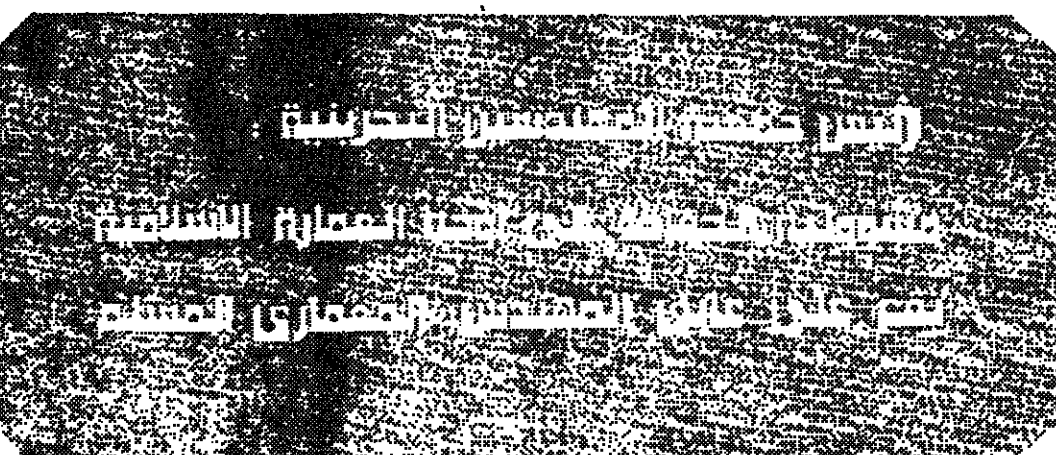 رئيس جمعية المهندسين البحرينية :
مسئولية الحفاظ على العمارة الاسلامية
تقع على عاتق المهندس المعمارى المسلم